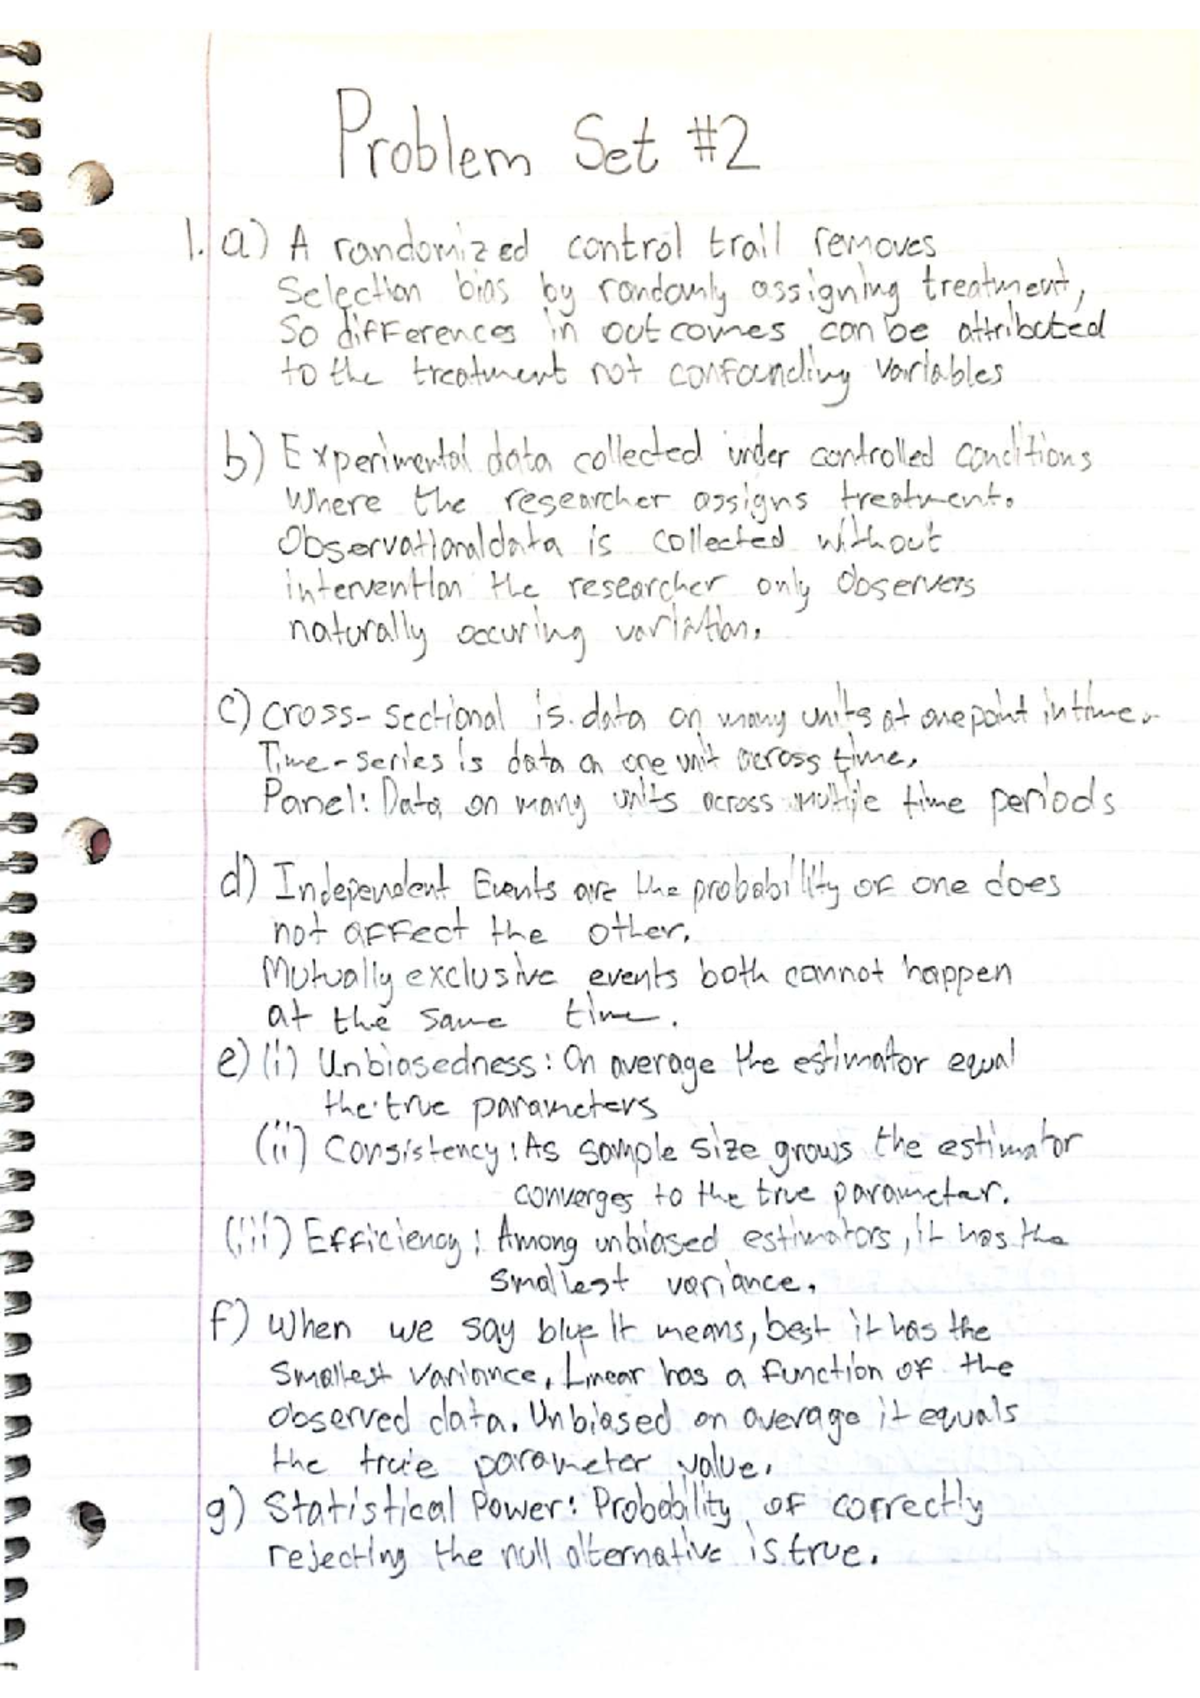 Problem Set #2
1. a) A randomized control trail removes
Selection bias by randomly assigning treatment,
So differences in outcomes can be attributed
to the treatment not confounding variables
b) Experimental data collected under controlled conditions
Where the researcher assigns treatment.
Observational data is collected without
intervention the researcher only observers
naturally occuring variation.
c) Cross-sectional is data on many units at one point in time.
Time-series is data on one unit across time.
Panel: Data on many units across multiple time periods
d) Independent Events are the probability of one does
not affect the other.
Mutually exclusive events both cannot happen
at the same time.
e) (i) Unbiasedness: On average the estimator equal
the true parameters
(ii) Consistency: As sample size grows the estimator
converges to the true parameter.
(iii) Efficiency: Among unbiased estimators, it has the
smallest variance.
f) When we say blue it means, best it has the
smallest variance, Linear has a function of the
observed data. Unbiased on average it equals
the true parameter value.
g) Statistical Power: Probability of correctly
rejecting the null alternative is true.